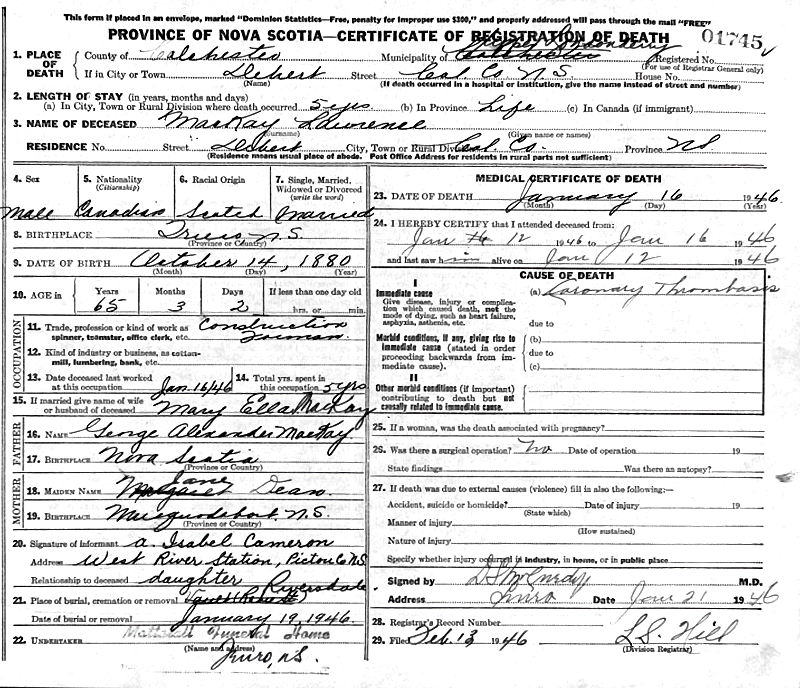 This form if placed in an envelope, marked "Dominion Statistics—Free, penalty for improper use $300," and properly addressed will pass through the mail "FREE"
PROVINCE OF NOVA SCOTIA—CERTIFICATE OF REGISTRATION OF DEATH 01745
1. PLACE OF DEATH County of Colchester Municipality of Colchester Registered No.
(For use of Registrar General only)
If in City or Town Debert Street Col. Co. N.S House No.
(Name) (If death occurred in a hospital or institution, give the name instead of street and number)
2. LENGTH OF STAY (in years, months and days)
(a) In City, Town or Rural Division where death occurred 5 yrs (b) In Province Life (c) In Canada (if immigrant)
3. NAME OF DECEASED MacKay Lawrence
(Surname) (Given name or names)
RESIDENCE No. Street Debert City, Town or Rural Division Col. Co. Province NS
(Residence means usual place of abode. Post Office Address for residents in rural parts not sufficient)
4. Sex 5. Nationality (Citizenship) 6. Racial Origin 7. Single, Married, Widowed or Divorced (write the word)
Male Canadian Scotch Married
8. BIRTHPLACE Truro N.S.
(Province or Country)
9. DATE OF BIRTH October 14, 1880
(Month) (Day) (Year)
10. AGE in Years Months Days If less than one day old
65 3 2 hrs. or min.
OCCUPATION
11. Trade, profession or kind of work as spinner, teamster, office clerk, etc. Construction Foreman
12. Kind of industry or business, as cotton-mill, lumbering, bank, etc.
13. Date deceased last worked at this occupation Jan. 16/46 14. Total yrs. spent in this occupation 5 yrs
15. If married give name of wife or husband of deceased Mary Ella MacKay
FATHER
16. NAME George Alexander MacKay
17. BIRTHPLACE Nova Scotia
(Province or Country)
MOTHER
18. MAIDEN NAME Margaret Jane Dean
19. BIRTHPLACE Musquodoboit N.S.
(Province or Country)
20. Signature of informant A. Isabel Cameron
Address West River Station, Pictou Co N.S.
Relationship to deceased daughter
21. Place of burial, cremation or removal Riverside
Date of burial or removal January 19, 1946.
22. UNDERTAKER Mattatall Funeral Home
(Name and address)
Truro, N.S.
MEDICAL CERTIFICATE OF DEATH
23. DATE OF DEATH January 16 1946
(Month) (Day) (Year)
24. I HEREBY CERTIFY that I attended deceased from:
Jan 12 1946 to Jan 16 1946
and last saw him alive on Jan 12 1946
CAUSE OF DEATH
I
Immediate cause (a) Coronary Thrombosis
Give disease, injury or complication which caused death, not the mode of dying, such as heart failure, asphyxia, asthenia, etc.
due to
Morbid conditions, if any, giving rise to immediate cause (stated in order proceeding backwards from immediate cause).
(b)
due to
(c)
II
Other morbid conditions (if important) contributing to death but not causally related to immediate cause.
25. If a woman, was the death associated with pregnancy?
26. Was there a surgical operation? No Date of operation 19
State findings Was there an autopsy?
27. If death was due to external causes (violence) fill in also the following:—
Accident, suicide or homicide? Date of injury 19
(State which)
Manner of injury
(How sustained)
Nature of injury
Specify whether injury occurred in industry, in home, or in public place
Signed by D. S. McCurdy M.D.
Address Truro Date Jan 21 1946
28. Registrar's Record Number
29. Filed Feb. 13 1946 L.S. Hill
(Division Registrar)